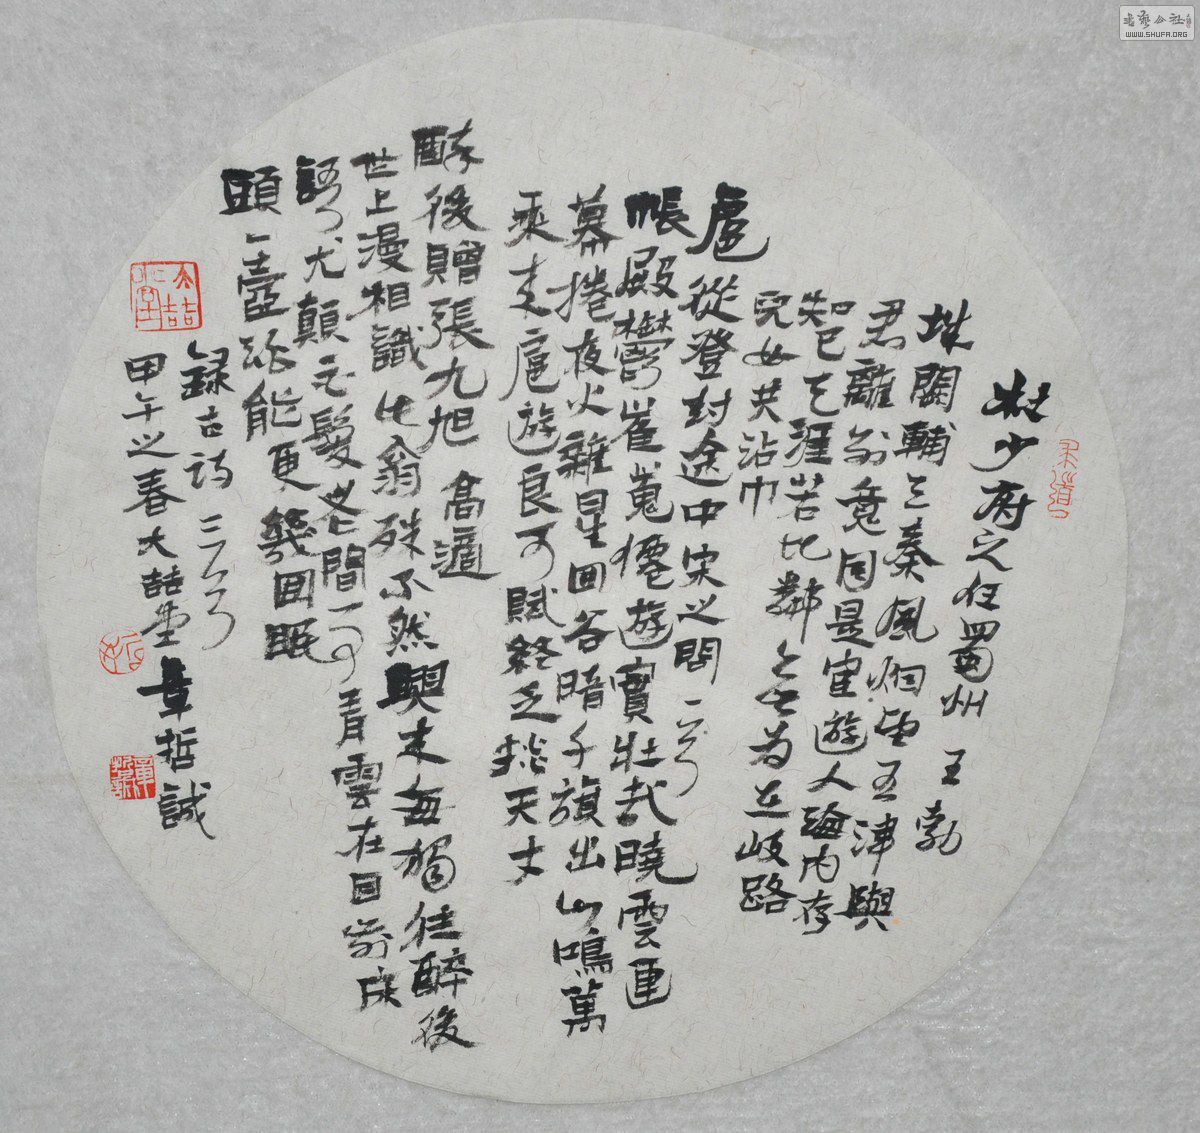 杜少府之任蜀州 王勃
城闕輔三秦風烟望五津與
君離別意同是宦遊人海內存
知己天涯若比鄰無為在歧路
兒女共沾巾
扈從登封途中宋之問 一首
帳殿鬱崔嵬僊遊實壯哉曉雲連
幕捲夜火雜星回谷暗千旗出山鳴萬
乘來扈遊良可賦終乏掞天才
醉後贈張九旭 高適
世上漫相識此翁殊不然興來每獨往醉後
語尤顛白髮老間事青雲在目前床
頭一壺酒能更幾回眠
錄古詩三首
甲午之春大喆堂章哲誠
大喆堂
書藝公社
WWW.SHUFA.ORG